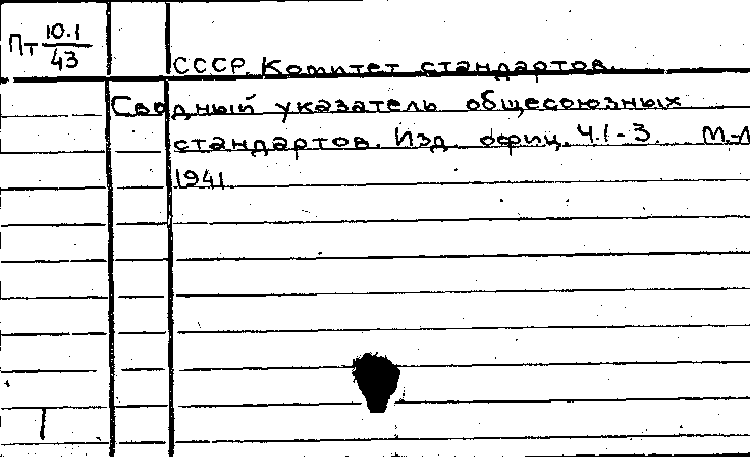 Пт 10.1/43
СССР. Комитет стандартов.
Сводный указатель общесоюзных
стандартов. Изд. офиц. Ч.1-3. М-Л
1941.